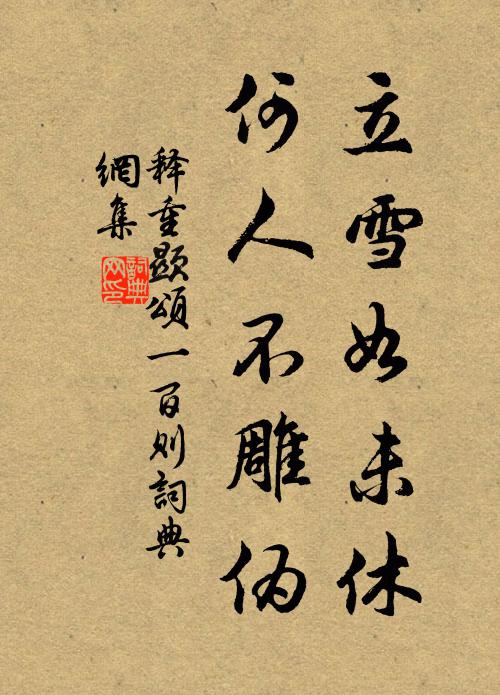 立雪如未休
何人不雕伪
释重顯頌一百则詞典
網集
詞典
网印